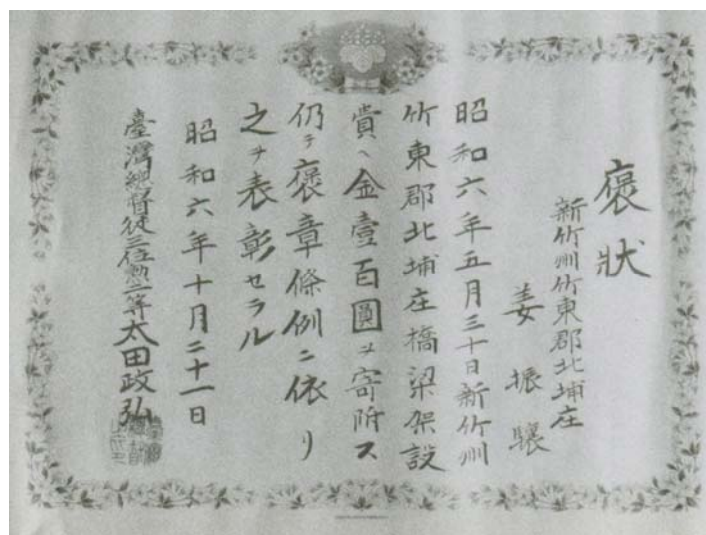 褒狀
新竹州竹東郡北埔庄
姜振驤
昭和六年五月三十日新竹州
竹東郡北埔庄橋梁架設
費ヘ金壹百圓ヲ寄附ス
仍テ褒章條例ニ依リ
之ヲ表彰セラル
昭和六年十月二十一日
臺灣總督從三位勲一等太田政弘